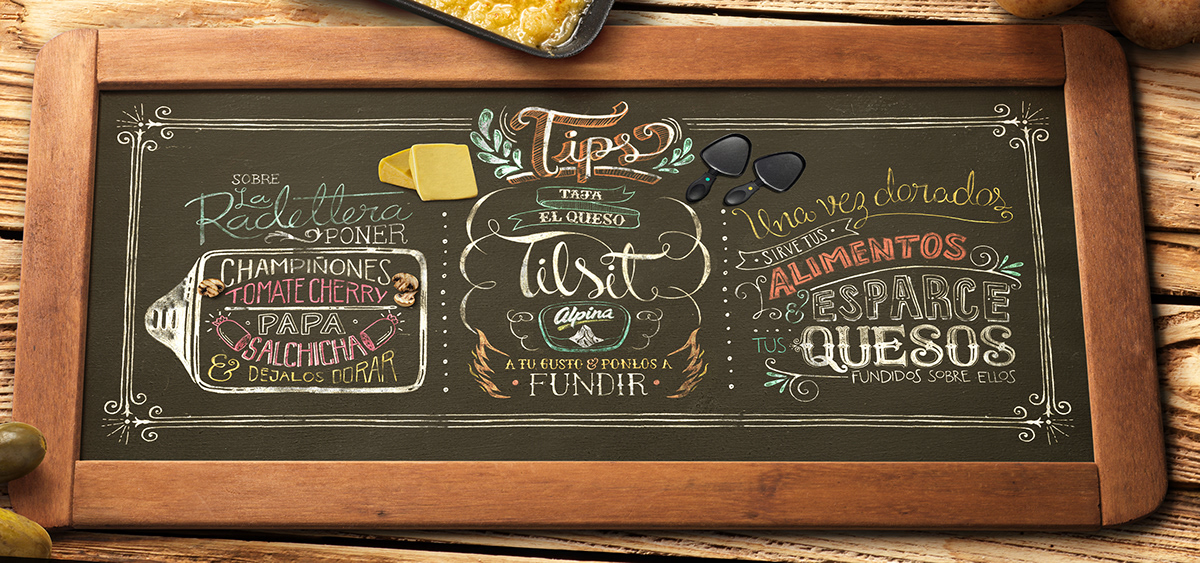 Tips
SOBRE
La
Raclettera
PONER
CHAMPIÑONES
TOMATE CHERRY
PAPA
SALCHICHA
& DEJALOS DORAR
TAJA
EL QUESO
Tilsit
Alpina
A TU GUSTO & PONLOS A
FUNDIR
Una vez dorados
SIRVE TUS
ALIMENTOS
& ESPARCE
TUS QUESOS
FUNDIDOS SOBRE ELLOS